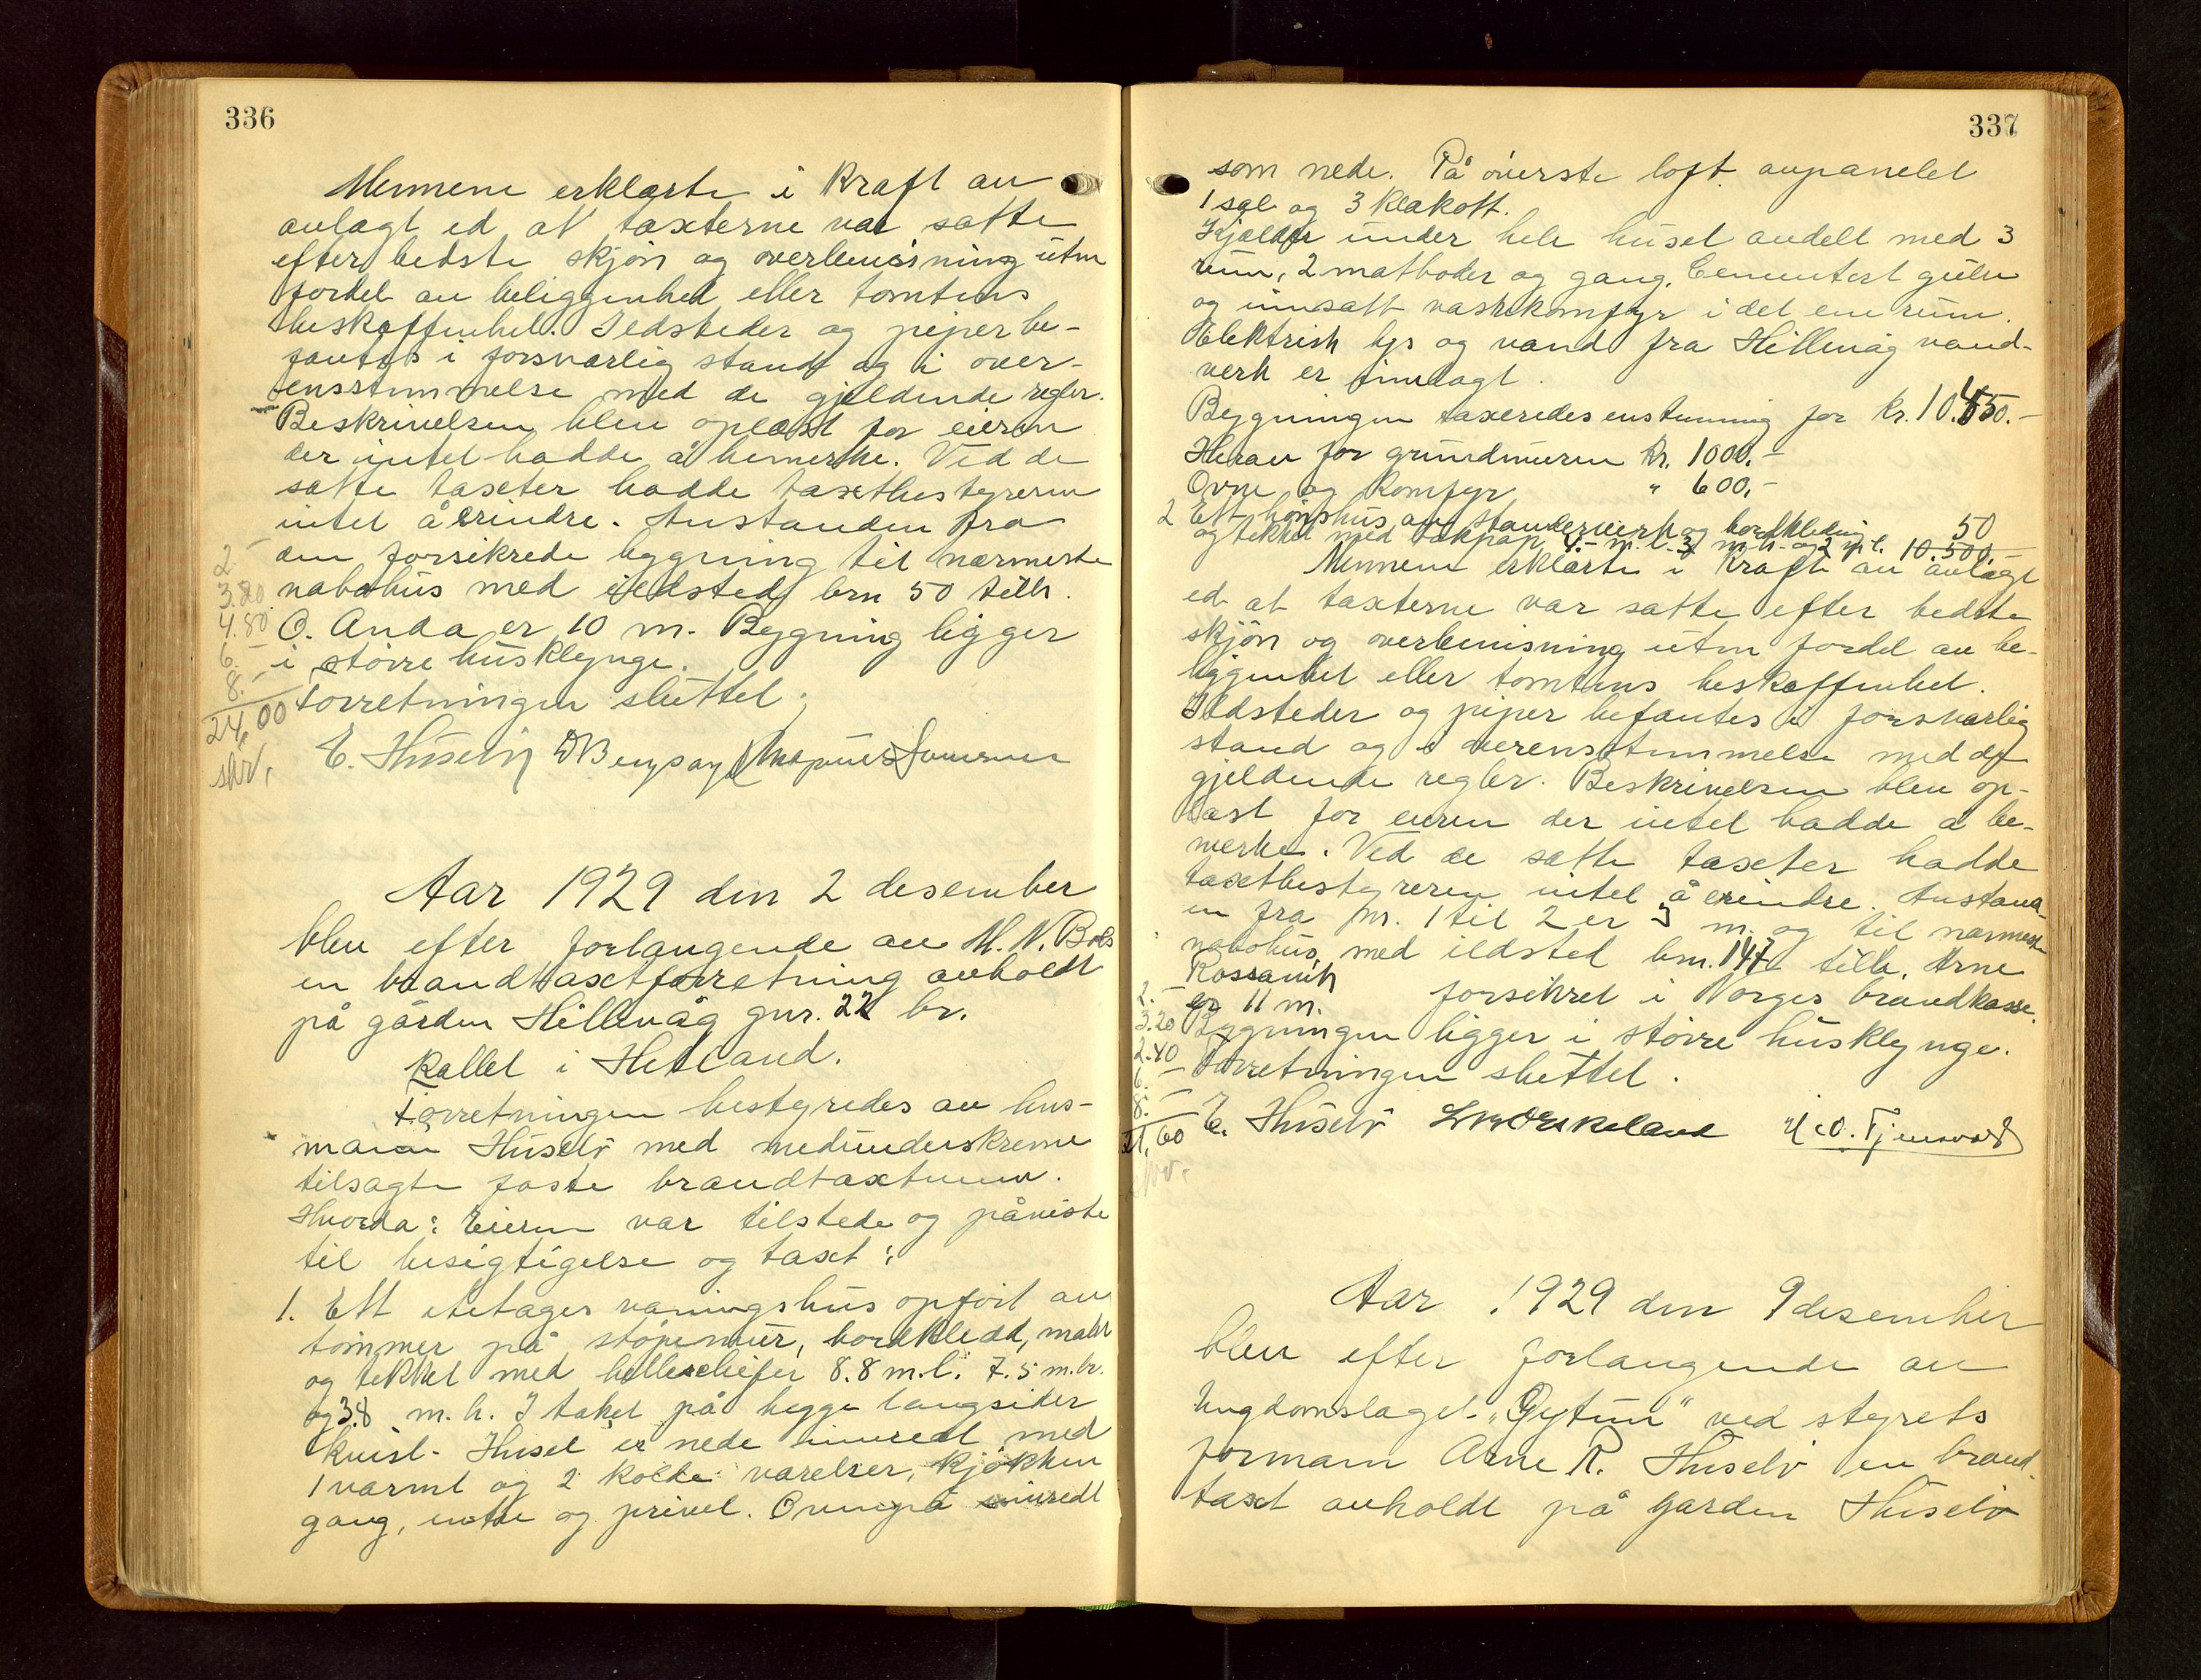 336
Mennene erklærte i kraft av
avlagt ed at taxterne var satte
efter bedste skjøn og overbevisning utn
fordel av beliggenhet eller tomtens
beskaffenhet. Ildsteder og piper be-
fantes i forsvarlig stand og i over-
ensstemmelse med de gjeldende regler.
Beskrivelsen blev oplæst for eieren
der intet hadde å bemerke. Ved de
satte taxter hadde taxtbestyreren
intet å erindre. Avstanden fra
den forsikrede bygning til nærmeste
nabohus med ildsted brn 50 tilh.
O. Anda er 10 m. Bygning ligger
i større husklynge.
Forretningen sluttet.
2 -
3.80
4.80
6. -
8. -
24,00
skr.
E. Husebø
Aar 1929 den 2 desember
blev efter forlangende av M. N. Bøe
en brandtaxtforretning avholdt
på gården Hillevåg gnr. 22 br.
kallet i Hetland.
Forretningen bestyredes av hus-
mann Husebø med medunderskrevne
tilsagte faste brandtaxtmenn.
Hvorda: Eieren var tilstede og påviste
til besigtigelse og taxt:
1. Ett etages våningshus opført av
tømmer på støpemur, bordkledd, malt
og tekket med helleskifer 8.8 m.l. 7.5 m.br.
og 3.8 m.h. I taket på begge langsider
kvist. Huset er nede innredt med
1 varmt og 2 kolde værelser, kjøkken
gang, entre og privet. Ovenpå innredt
337
som nede. På øverste loft avpanelet
1 sal og 3 klakott.
Kjælder under hele huset avdelt med 3
rum, 2 matboder og gang. Cementert gulv
og innsatt vaskekomfyr i det ene rum.
Elektrisk lys og vand fra Hillevåg vand-
verk er innlagt.
Bygningen taxeredes enstemmig for kr. 10.450.-
Herav for grundmuren kr. 1000.-
Ovne og komfyr " 600,-
2 Ett hønshus av stenderverk og bordkledning 50
og tekket med takpap 4.- m.l. 3 m.h. og 2 m.l. 10.500.-
Mennene erklærte i kraft av avlagt
ed at taxterne var satte efter bedste
skjøn og overbevisning utn fordel av be-
liggenhet eller tomtens beskaffenhet.
Ildsteder og piper befantes i forsvarlig
stand og i overensstemmelse med de
gjeldende regler. Beskrivelsen blev op-
læst for eieren der intet hadde å be-
merke. Ved de satte taxter hadde
taxtbestyreren intet å erindre. Avstand-
en fra nr. 1 til 2 er 3 m. og til nærmeste
nabohus med ildsted brn. 147 tilh. Arne
Rossavik
er 11 m. forsikret i Norges brandkasse.
Bygningen ligger i større husklynge.
Forretningen sluttet.
2. -
3.20
2.40
6. -
8. -
21,60
E. Husebø
Aar 1929 den 9 desember
blev efter forlangende av
Ungdomslaget "Gytun" ved styrets
formann Arne R. Husebø en brand-
taxt avholdt på garden Husebø